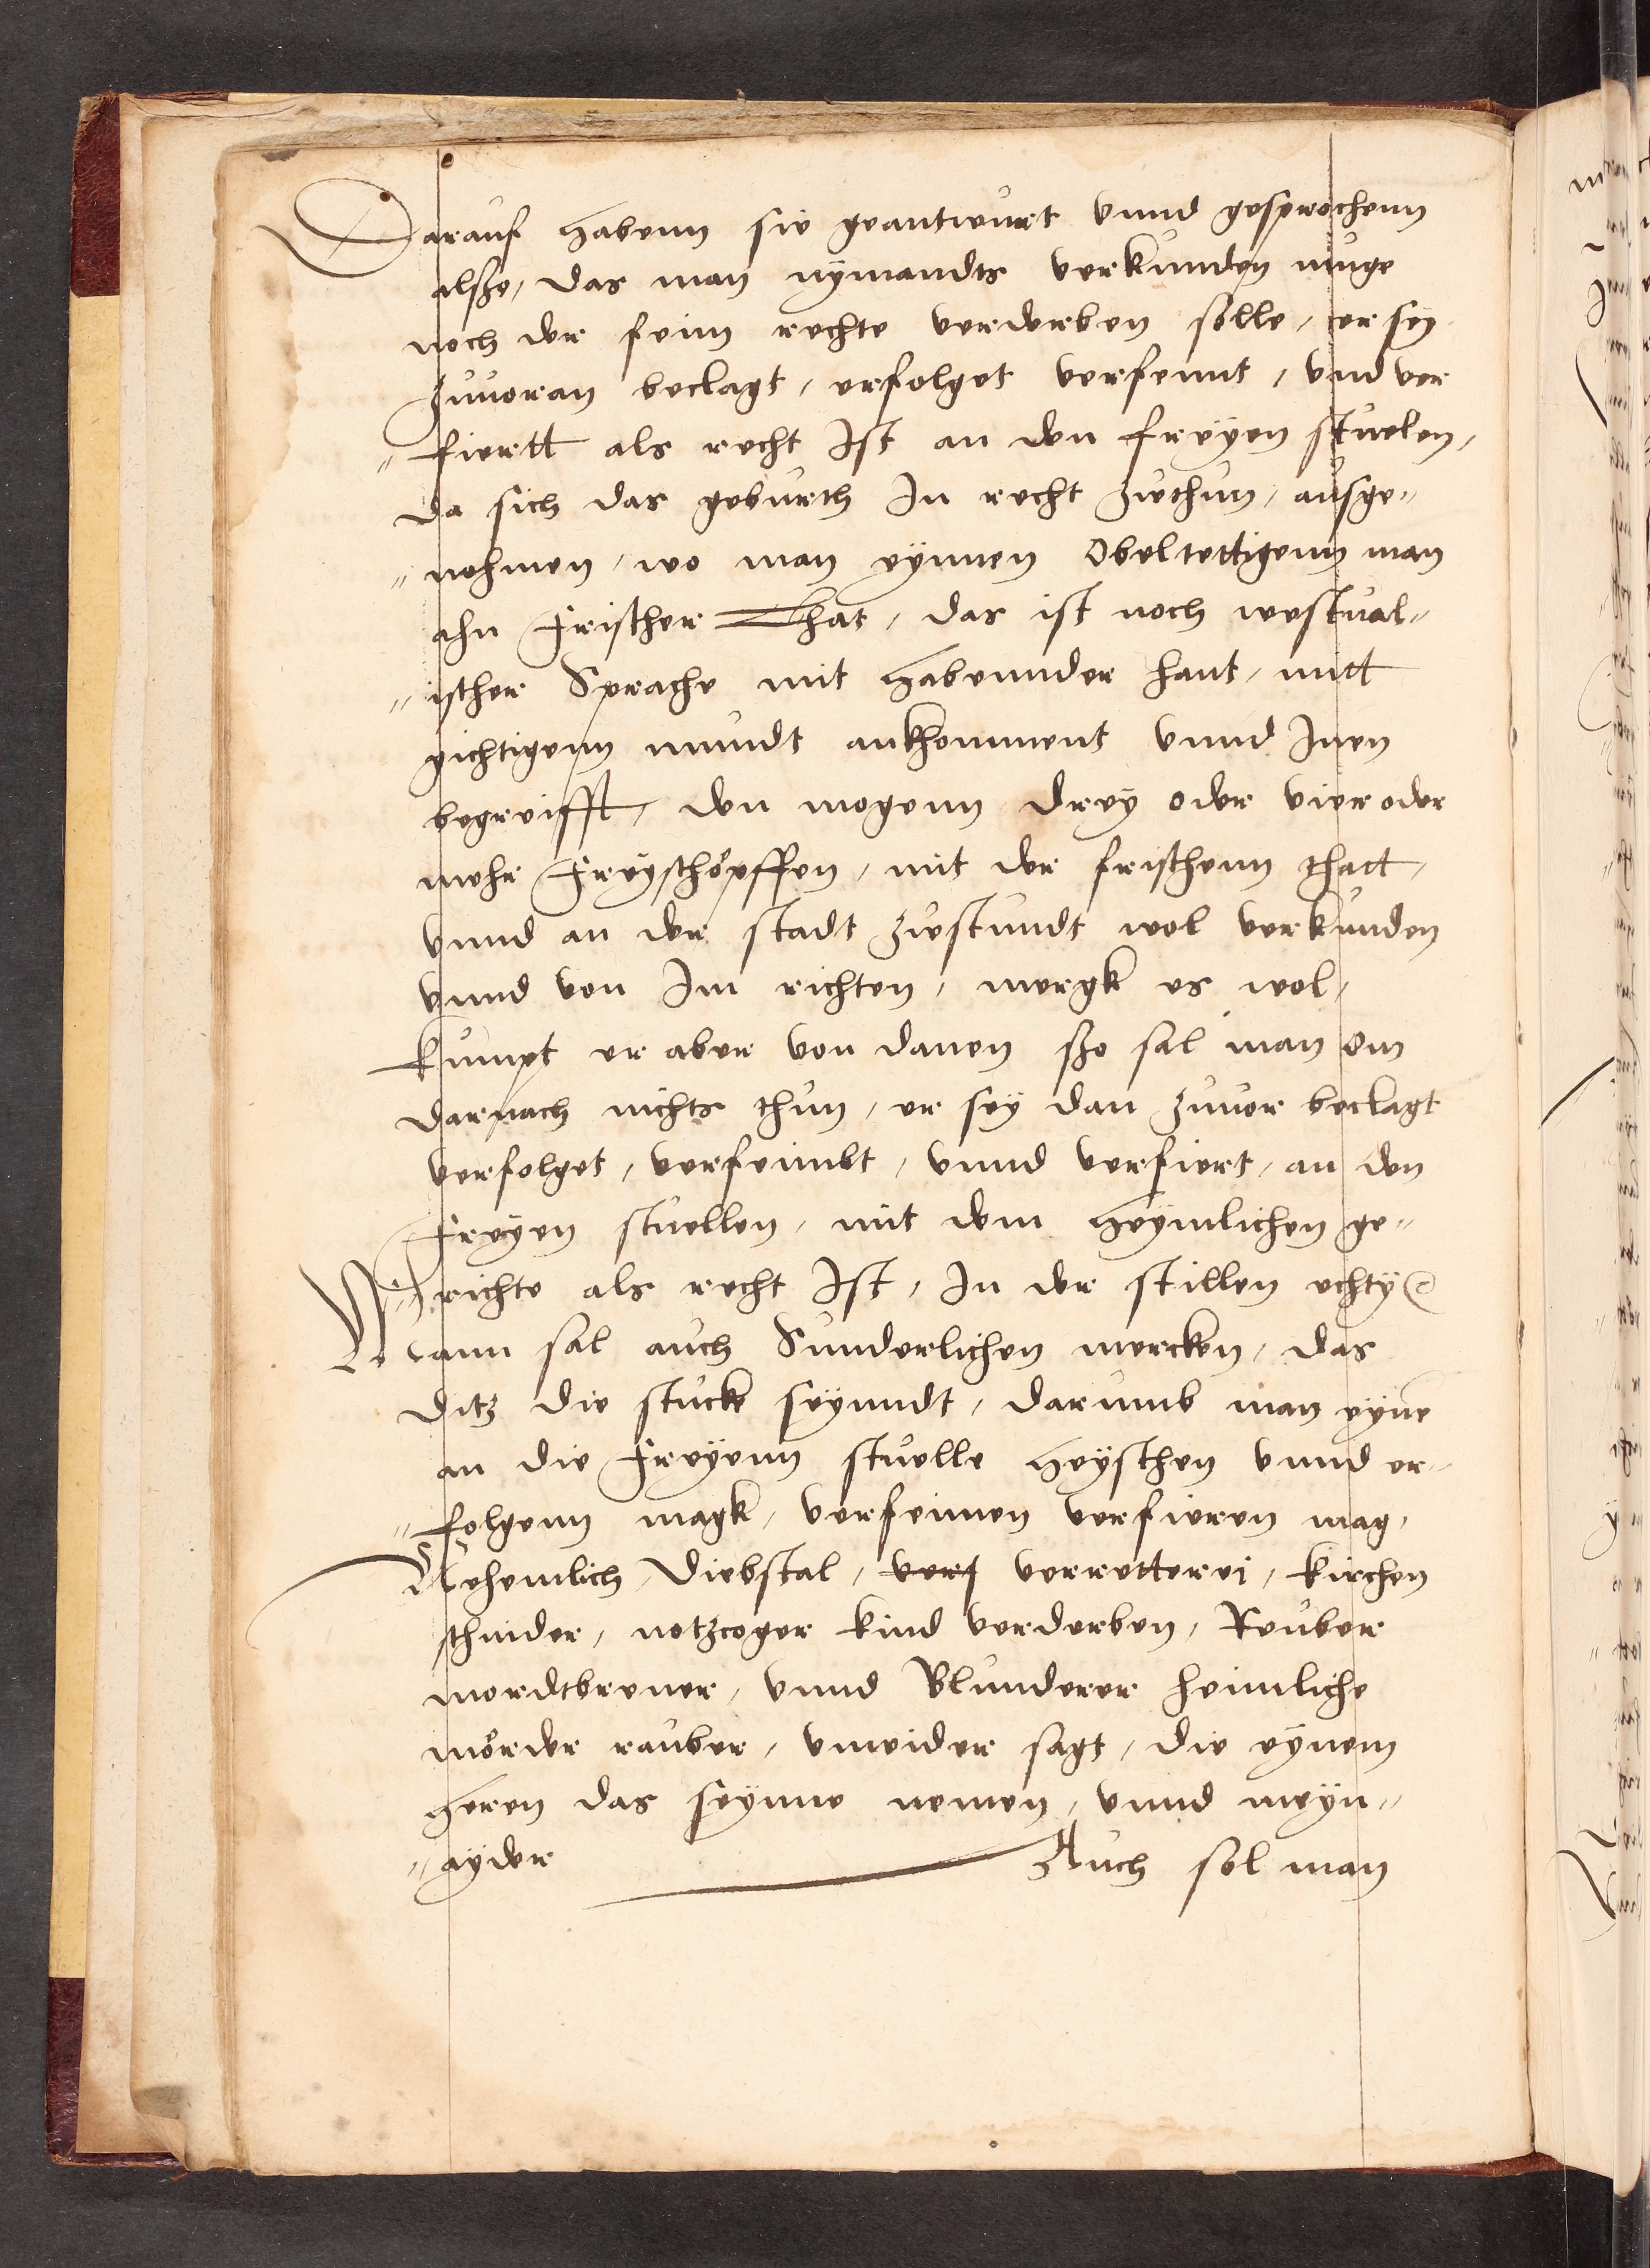 Darauf habenn sie geantwurt vnnd gesprochenn
alsße, das man nÿmandts verkunden muge
noch der feim rechte verderben solle, er seÿ
zuuoran beclagt, erfolget verfemt, vnd ver
"fiertt als recht Ist an den freÿen stuelen,
da sich das geburth In recht zuthun, ausge"
"nohmen, wo man eÿnnen Obeltettigenn man
ahn frischer That, das ist noch westual"
"ischer Sprache mit habennder hant, mitt
gichtigenn mundt ankhomment vnnd Inen
begreifft, den mogenn dreÿ oder vier oder
mehr freÿschöpffen, mit der frischenn thatt,
vnnd an der stadt zustundt wol verkunden
vnnd von Im richten, mergk es wol,
kumpt er aber von danen sßo sal man Om
darnach nichts thun, er seÿ dan zuuor beclagt
verfolget, verfeimbt, vnnd verfiert, an den
freÿen stuellen, mit dem heÿmlichen ge"
"richte als recht Ist, In der stillen echtÿ
Mann sal auch Sunderlichen mercken, das
ditz die stucke seÿnndt, darumb man eÿnē
an die freÿenn stuelle heÿschen vnnd er"
"folgenn magk, verfeimen verfieren mag,
Nehemlich, Diebstal, verretterei, kirchen
schinder, notzcoger kind verderben, Reuber
mordtbrener, vnnd Blunderer heimliche
mörder rauber, vnwider sagt, die eÿnem
heren das seÿnne nemen, vnnd meÿn"
"aÿder Auch sol man